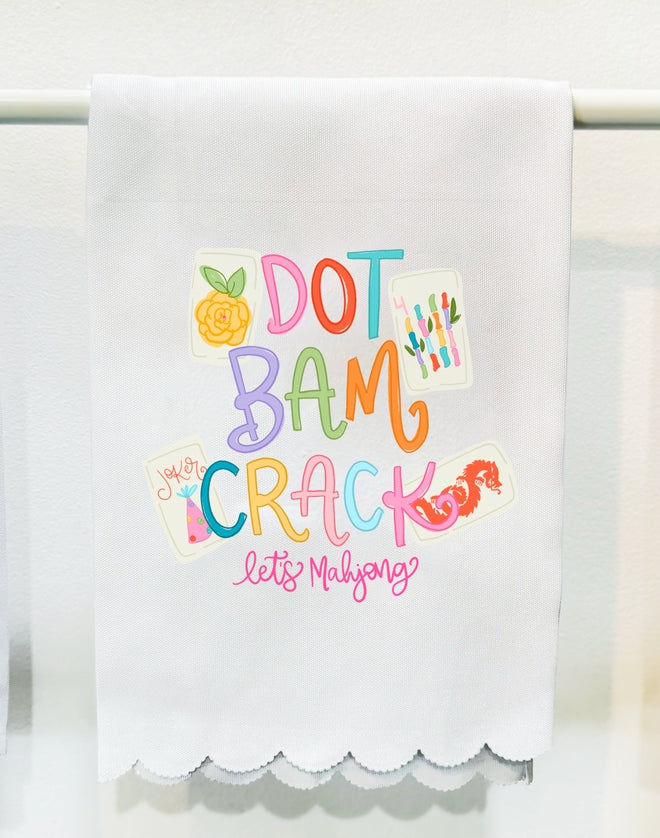 DOT
4
BAM
JOKER
CRACK
let's Mahjong